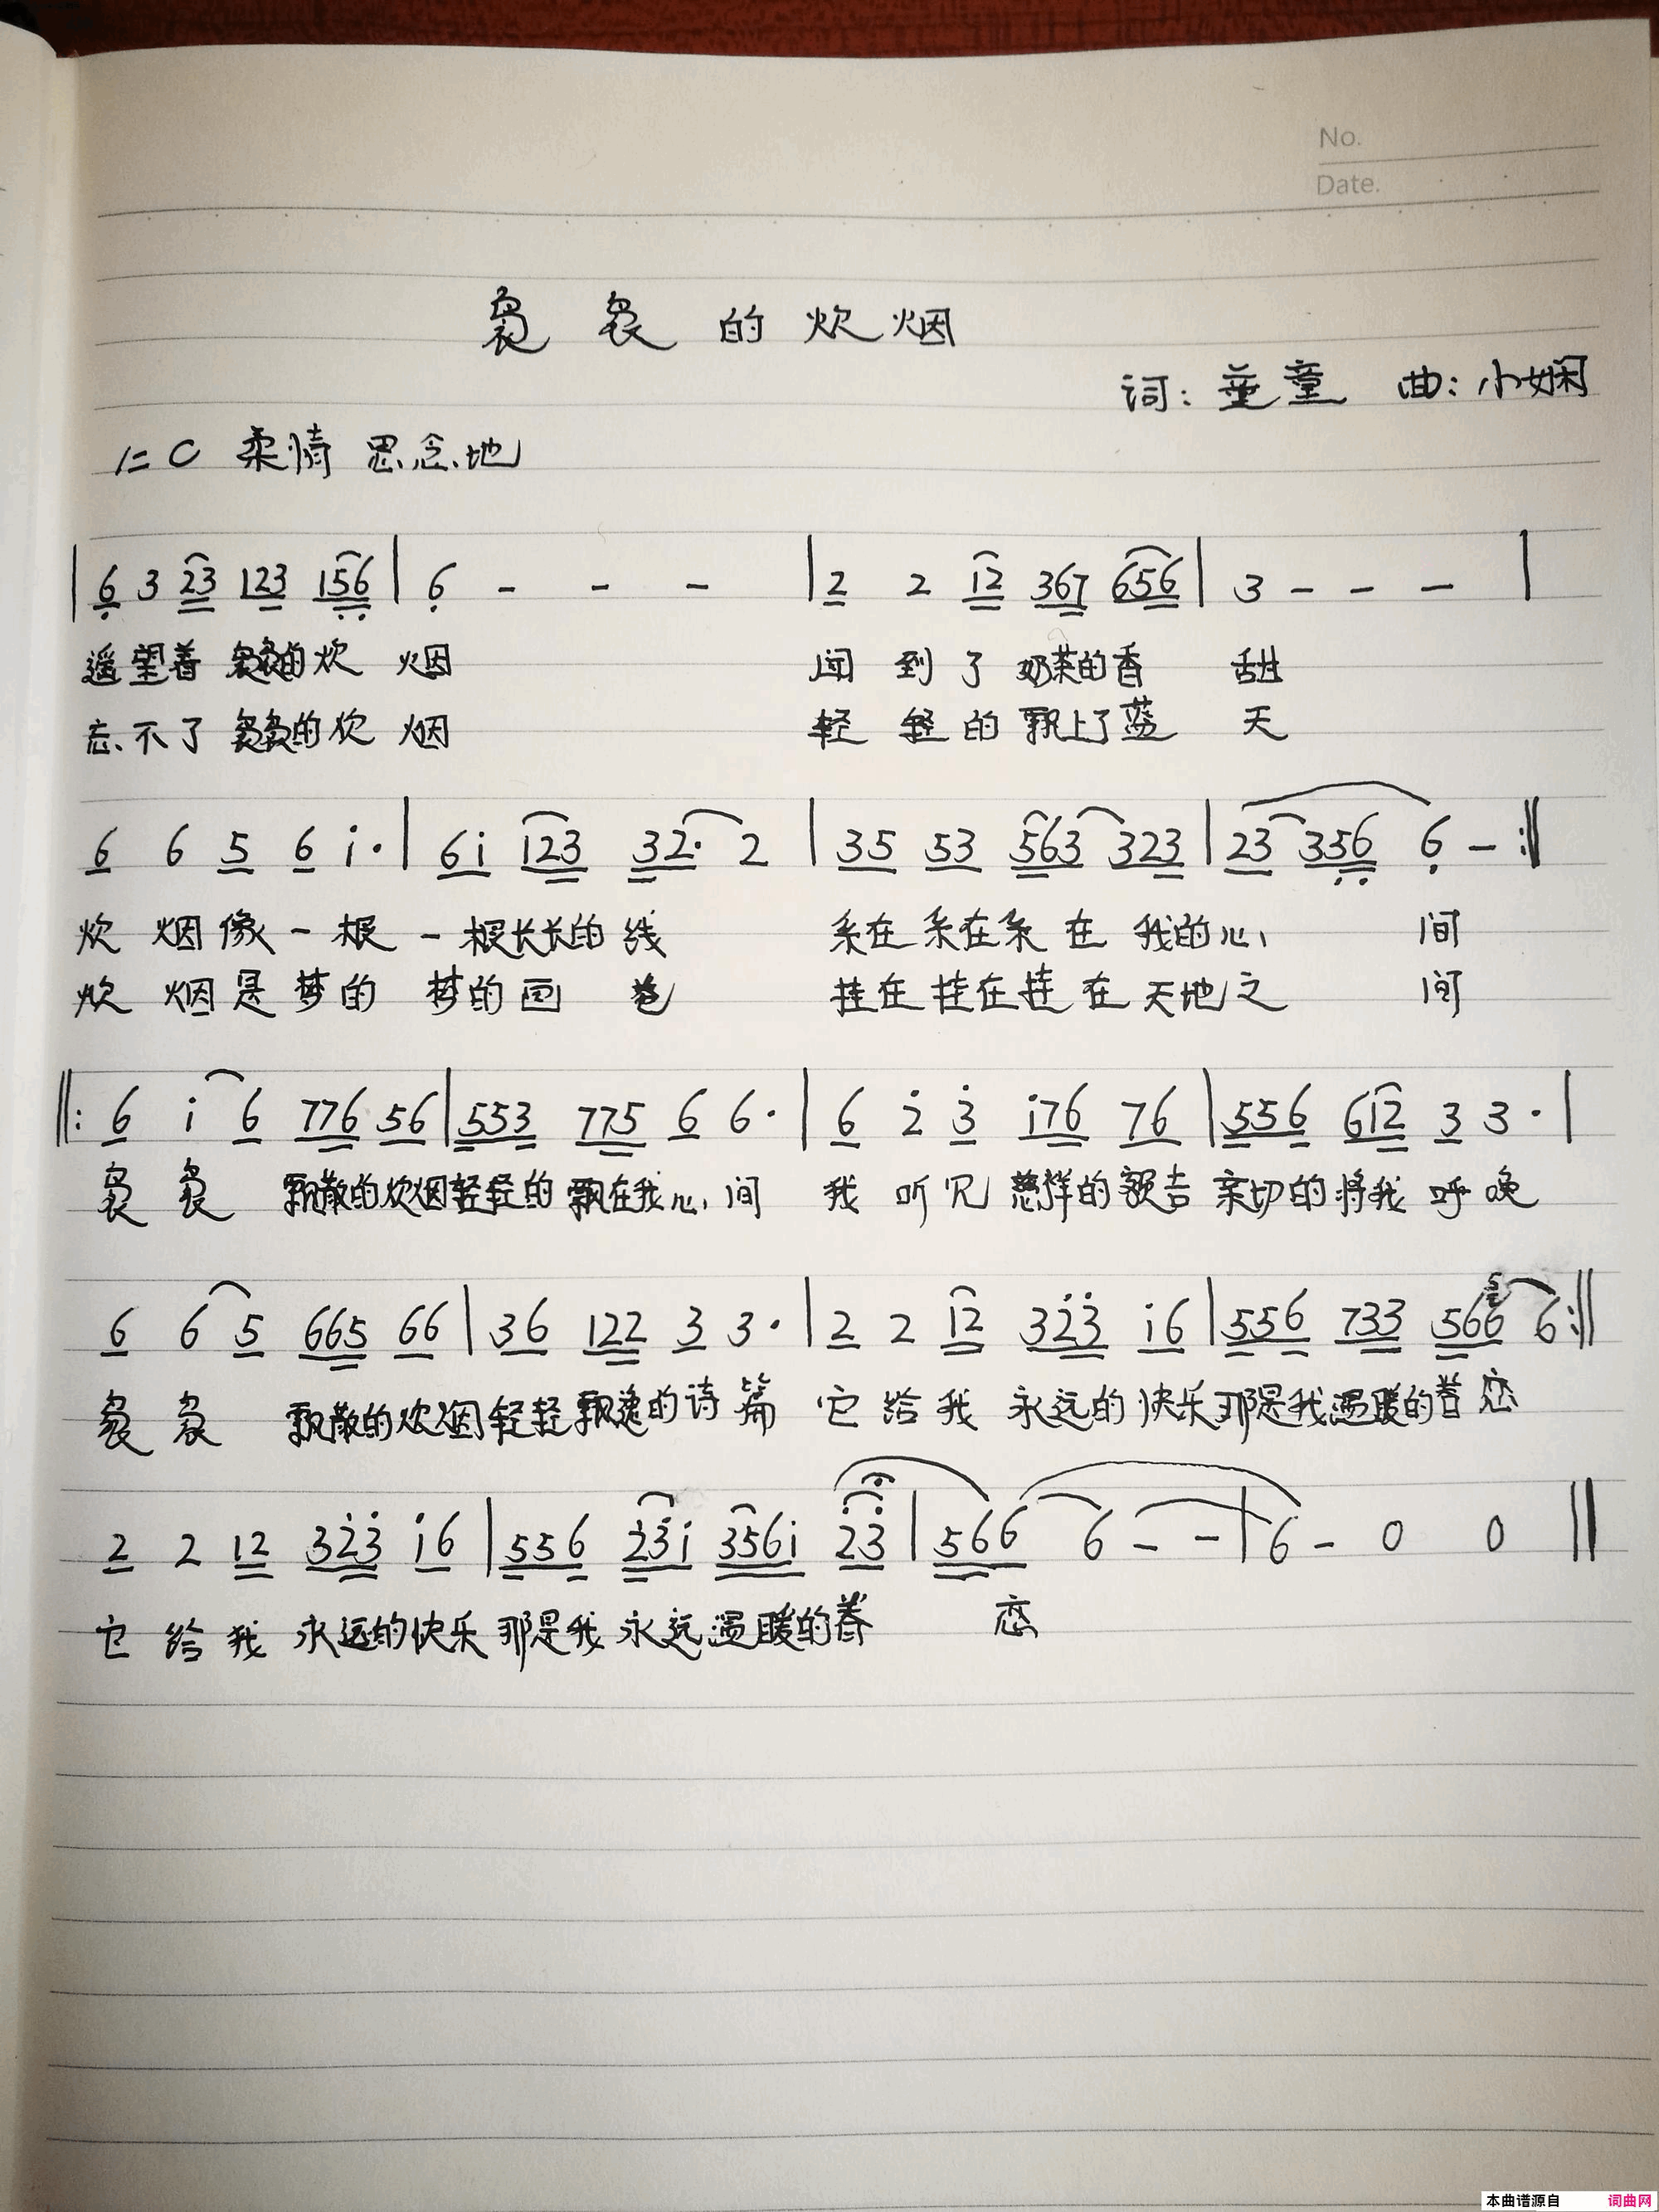 No.
Date.
袅袅的炊烟
词:董童 曲:小娴
1=C 柔情 思念地
| 6 3 23 123 156 | 6 - - - | 2 2 12 367 656 | 3 - - - |
遥望着袅袅的炊烟 闻到了奶茶的香甜
忘不了袅袅的炊烟 轻轻的飘上了蓝天
6 6 5 6 i· | 6i 123 32· 2 | 35 53 563 323 | 23 356 6 - :‖
炊烟像一根一根长长的线 系在系在系在我的心间
炊烟是梦的梦的画卷 挂在挂在挂在天地之间
‖: 6 i 6 776 56 | 553 775 6 6· | 6 2 3 i76 76 | 556 612 3 3· |
袅袅飘散的炊烟轻轻的飘在我心间 我听见慈祥的额吉亲切的将我呼唤
6 6 5 665 66 | 36 122 3 3· | 2 2 12 323 i6 | 556 733 566 6 :‖
袅袅飘散的炊烟轻轻飘逸的诗篇 它给我永远的快乐那是我温暖的眷恋
2 2 12 323 i6 | 556 23i 356i 23 | 566 6 - - | 6 - 0 0 ‖
它给我永远的快乐那是我永远温暖的眷恋
本曲谱源自 词曲网